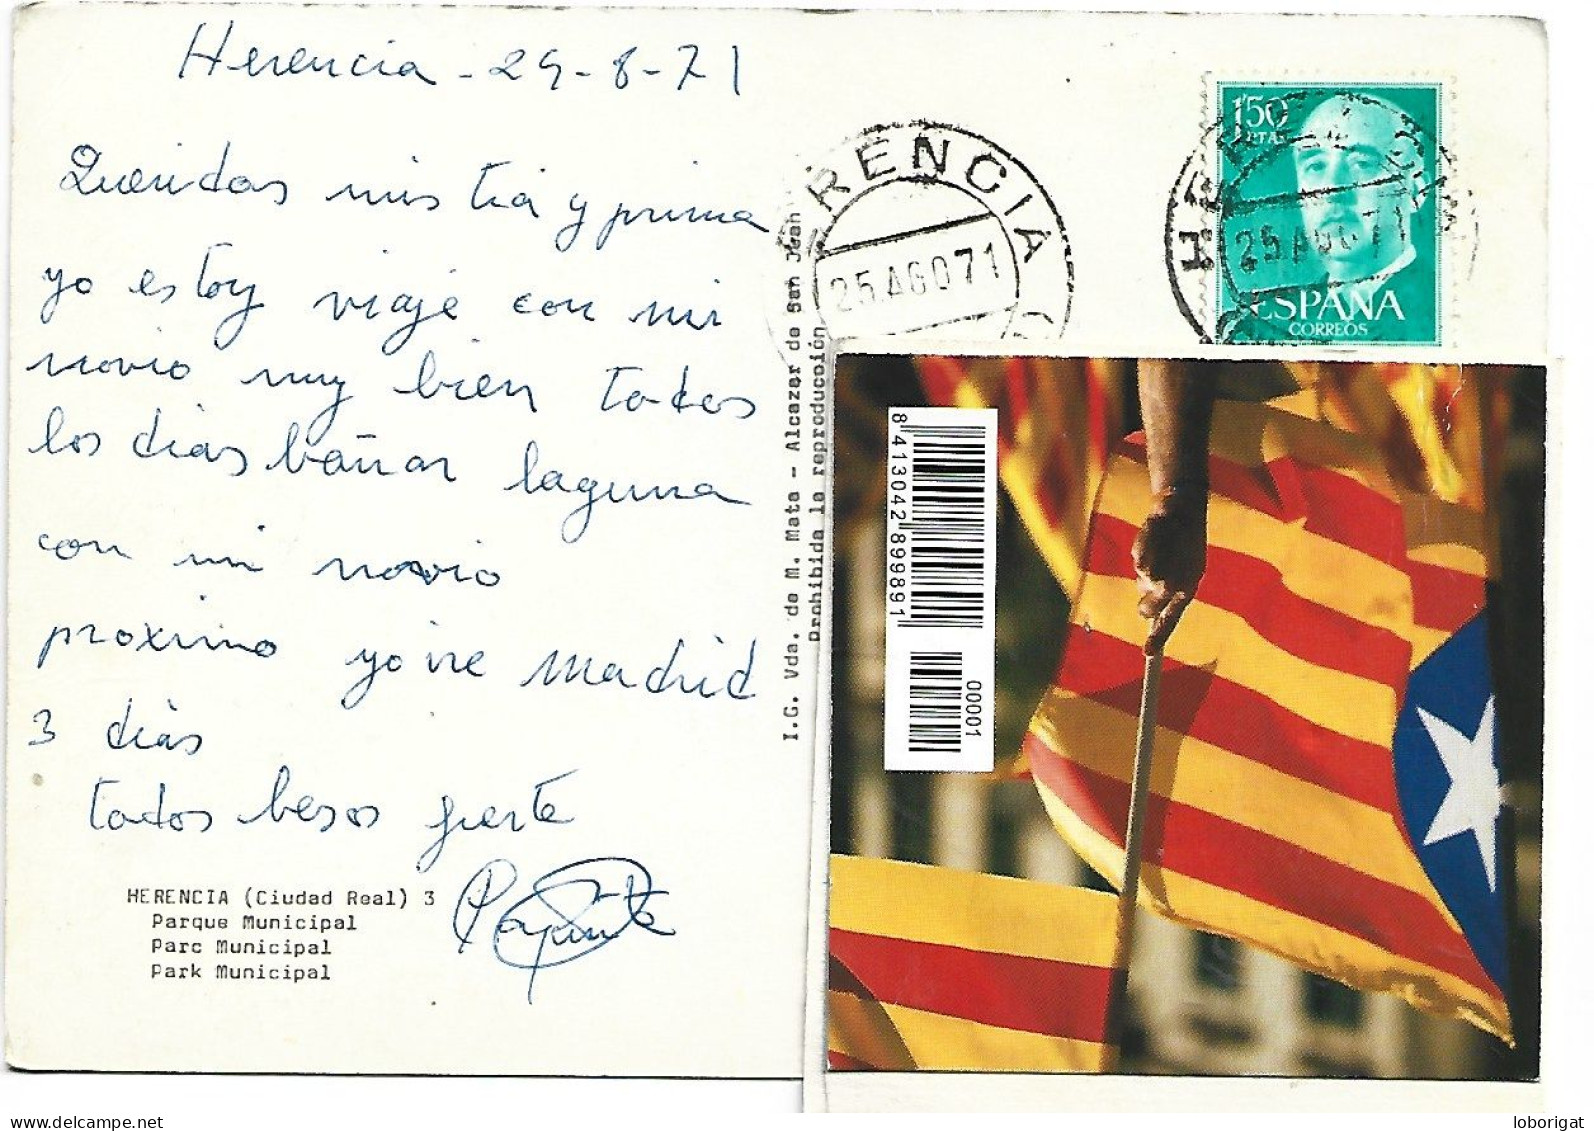 Herencia - 24 - 8 - 71
Queridas mis tia y prima
yo estoy viaje con mi
novio muy bien todos
los dias bañar laguna
con mi novio
proximo yo ire Madrid
3 dias
todos besos fuerte
HERENCIA (Ciudad Real) 3
Parque Municipal
Parc Municipal
Park Municipal
I.G. Vda. de M. Mata - Alcazar de San Juan
Prohibida la reproducción
ERENCIA
25 AGO 71
1'50
PTAS
HERENCIA
25 AGO 71
ESPAÑA
CORREOS
8 413042 899891
00001
loborigat